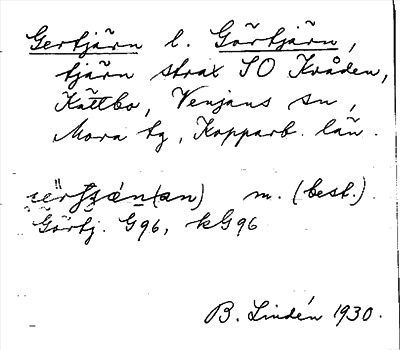 Gertjärn l. Görtjärn,
tjärn strax SO Kråden,
Kättbo, Venjans sn,
Mora tg, Kopparb. län.
(an) m. (best.)
Görtj. G96, kG96
B. Lindén 1930.